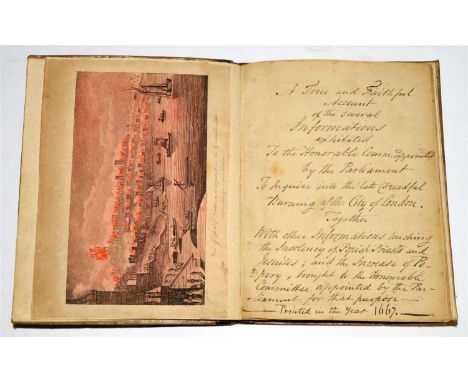 A True and Faithful
Account
of the several
Informations
exhibited
To the Honorable Comm. appointed
by the Parliament
To Inquire into the late Dreadful
Burning of the City of London.
Together
With other Informations touching
the Insolency of Popish Priests and
Jesuites; and the Increase of Po-
pery, brought to the Honourable
Committee appointed by the Par-
-liament for that purpose —
— Printed in the Year 1667. —